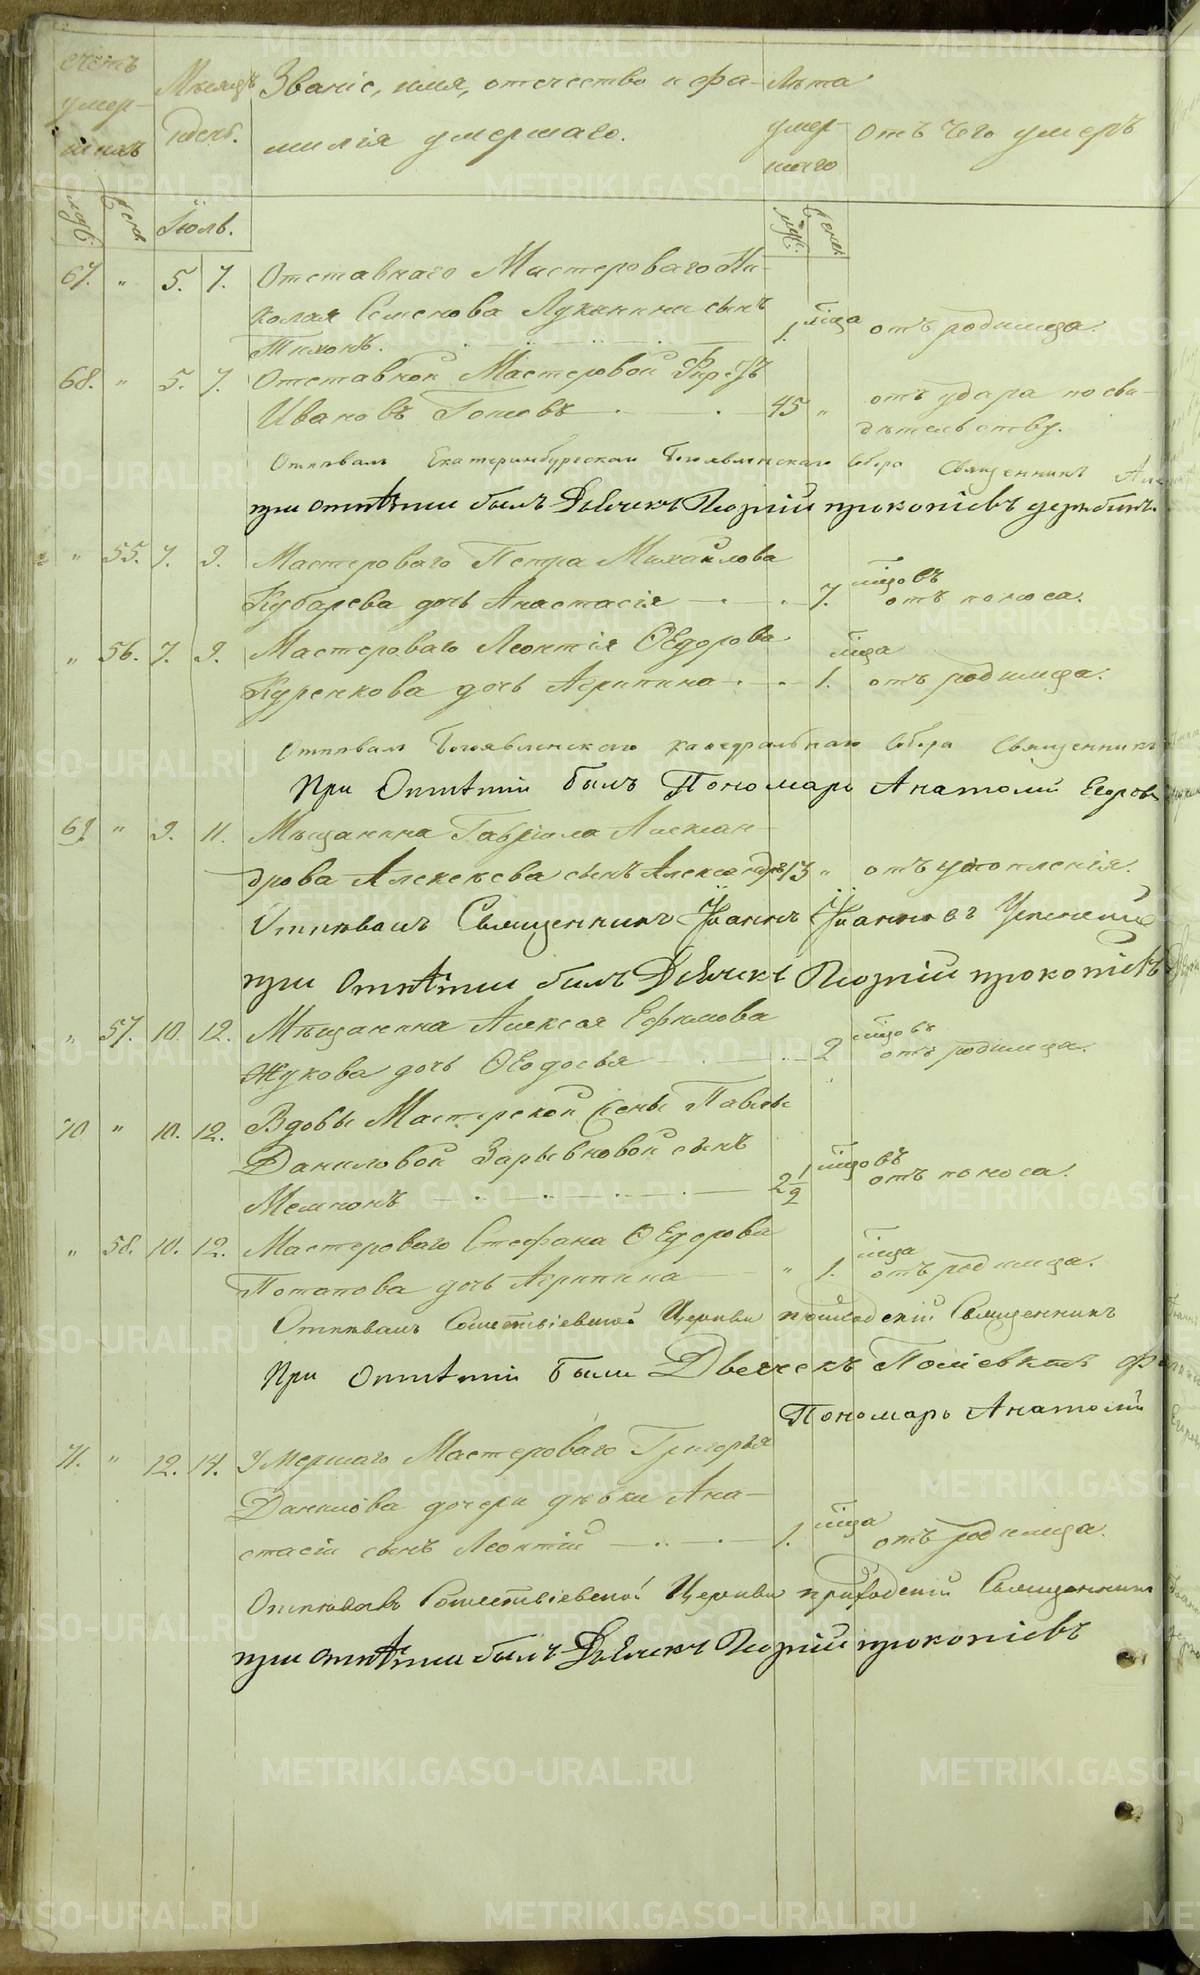 Счетъ умершихъ
Мѣсяцъ и день.
Званіе, имя, отечество и фа-
милія умершаго.
Лѣта умершаго
отъ чего умеръ
муж. женс. Іюль. муж. женс.
67. " 5. 7. Отставнаго Мастероваго Ни-
колая Семенова Лукинина сынъ 1. мѣца отъ родимца.
Тихонъ.
68. " 5. 7. Отставной Мастеровой
Ивановъ Титовъ 45 " отъ удара по сви-
дѣтельству.
Отпѣвалъ Екатеринбургскаго Богоявленскаго Собора Священникъ
при отпѣтіи былъ Дьячекъ Георгій прокопіевъ
" 55. 7. 9. Мастероваго Петра Михайлова
Кубарева дочь Анастасія 7. мцовъ отъ поноса.
" 56. 7. 9. Мастероваго Леонтія Ѳедорова
Куренкова дочь Агрипина 1. мца отъ родимца.
Отпѣвалъ Богоявленскаго кафедральнаго Собора Священникъ
При Отпѣтіи былъ Пономарь Анатолій Егоровъ
69. " 9. 11. Мѣщанина Гавріила Алексан-
дрова Алексѣева сынъ Александръ 13 " отъ утопленія.
Отпѣвалъ Священникъ Іоаннъ Іоанновъ
при Отпѣтіи былъ Дьячекъ Георгій прокопіевъ
" 57. 10. 12. Мѣщанина Алексея Ефимова
Жукова дочь Ѳеодосья 2 мцовъ отъ родимца.
70 " 10. 12. Вдовы Мастерской жены Павлы
Даниловой Зарывновой сынъ
Мемнонъ 2 1/2 мцовъ отъ поноса.
" 58. 10. 12. Мастероваго Стефана Ѳедорова
Потапова дочь Агрипина " 1. мца отъ родимца.
Отпѣвалъ Сошествіевской Церкви приходскій Священникъ
При Отпѣтіи были Дьячекъ
Пономарь Анатолій
71. " 12. 14. Умершаго Мастероваго Григорья
Данилова дочери дѣвки Ана-
стасіи сынъ Леонтій 1. мца отъ родимца.
Отпѣвалъ Сошествіевской Церкви приходскій Священникъ
при отпѣтіи былъ Дьячекъ Георгій прокопіевъ
METRIKI.GASO-URAL.RU